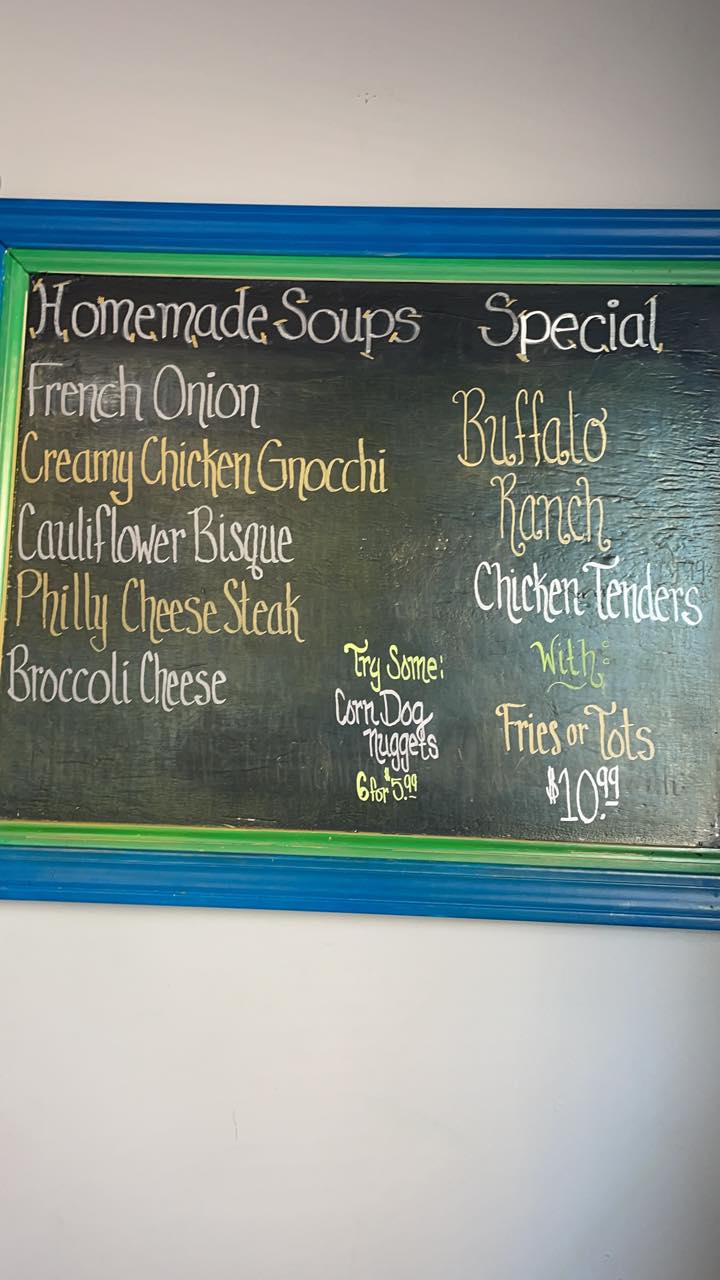 Homemade Soups
French Onion
Creamy Chicken Gnocchi
Cauliflower Bisque
Philly Cheese Steak
Broccoli Cheese
Try Some:
Corn Dog
Nuggets
6 for $5.99
Special
Buffalo
Ranch
Chicken Tenders
With:
Fries or Tots
$10.99